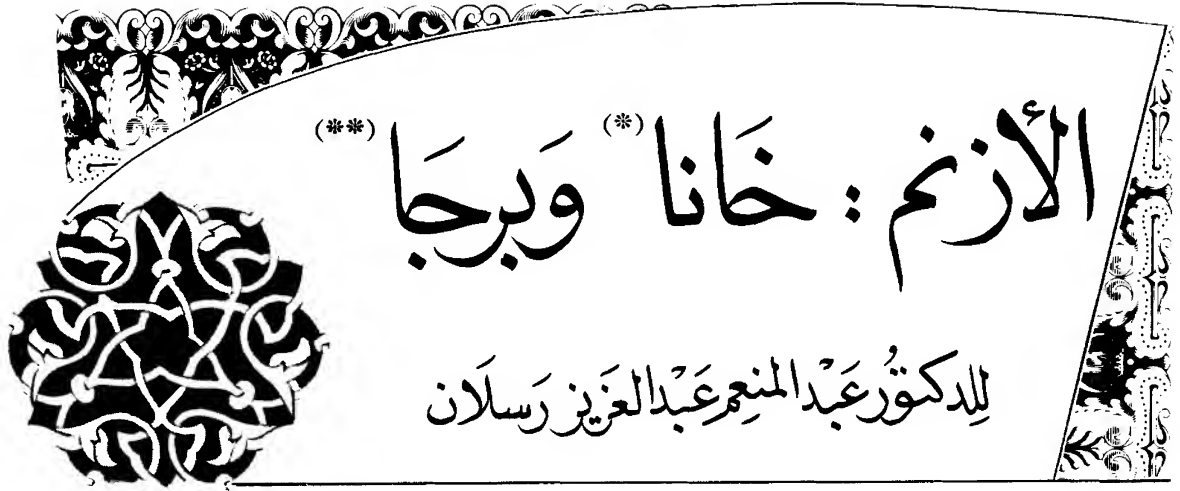 الأزنم : خَانا (*) وَبرجَا (**)
للدكتُور عَبْد المنعِم عَبْد العَزيز رَسلَان